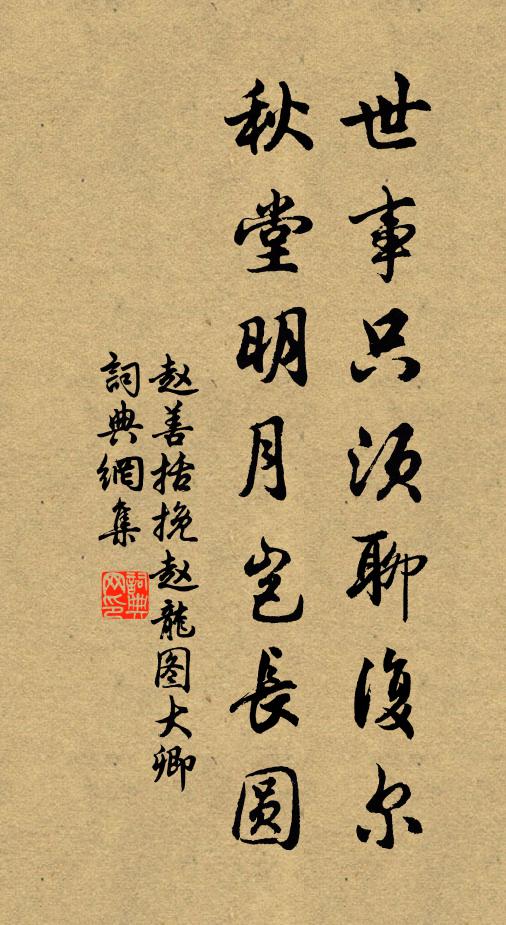 世事只须聊復尔
秋堂明月岂長圆
赵善括挽赵龍图大卿
詞典網集
詞典网印